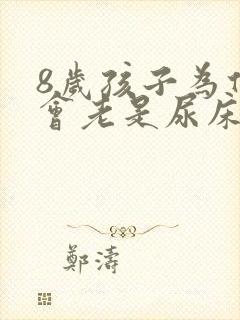 8歲孩子為什
會老是尿床
鄭濤